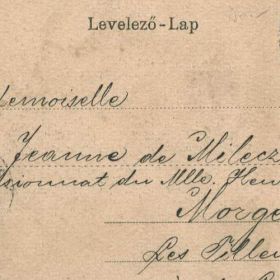 Levelező-Lap
demoiselle
Jeanne de Milecz
sionnat du Mlle. Hen
Morge
Les Tille